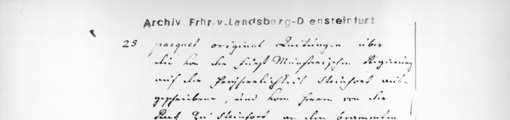 Archiv Frhr.v.Landsberg-Drensteinfurt
25 pacquet original Quitungen über
die von der fürst Münsterischen Regierung
auf die Herrlichkeit Steinfort aus-
geschriebene, und vom Herrn von der
Reck zu Steinfort an den